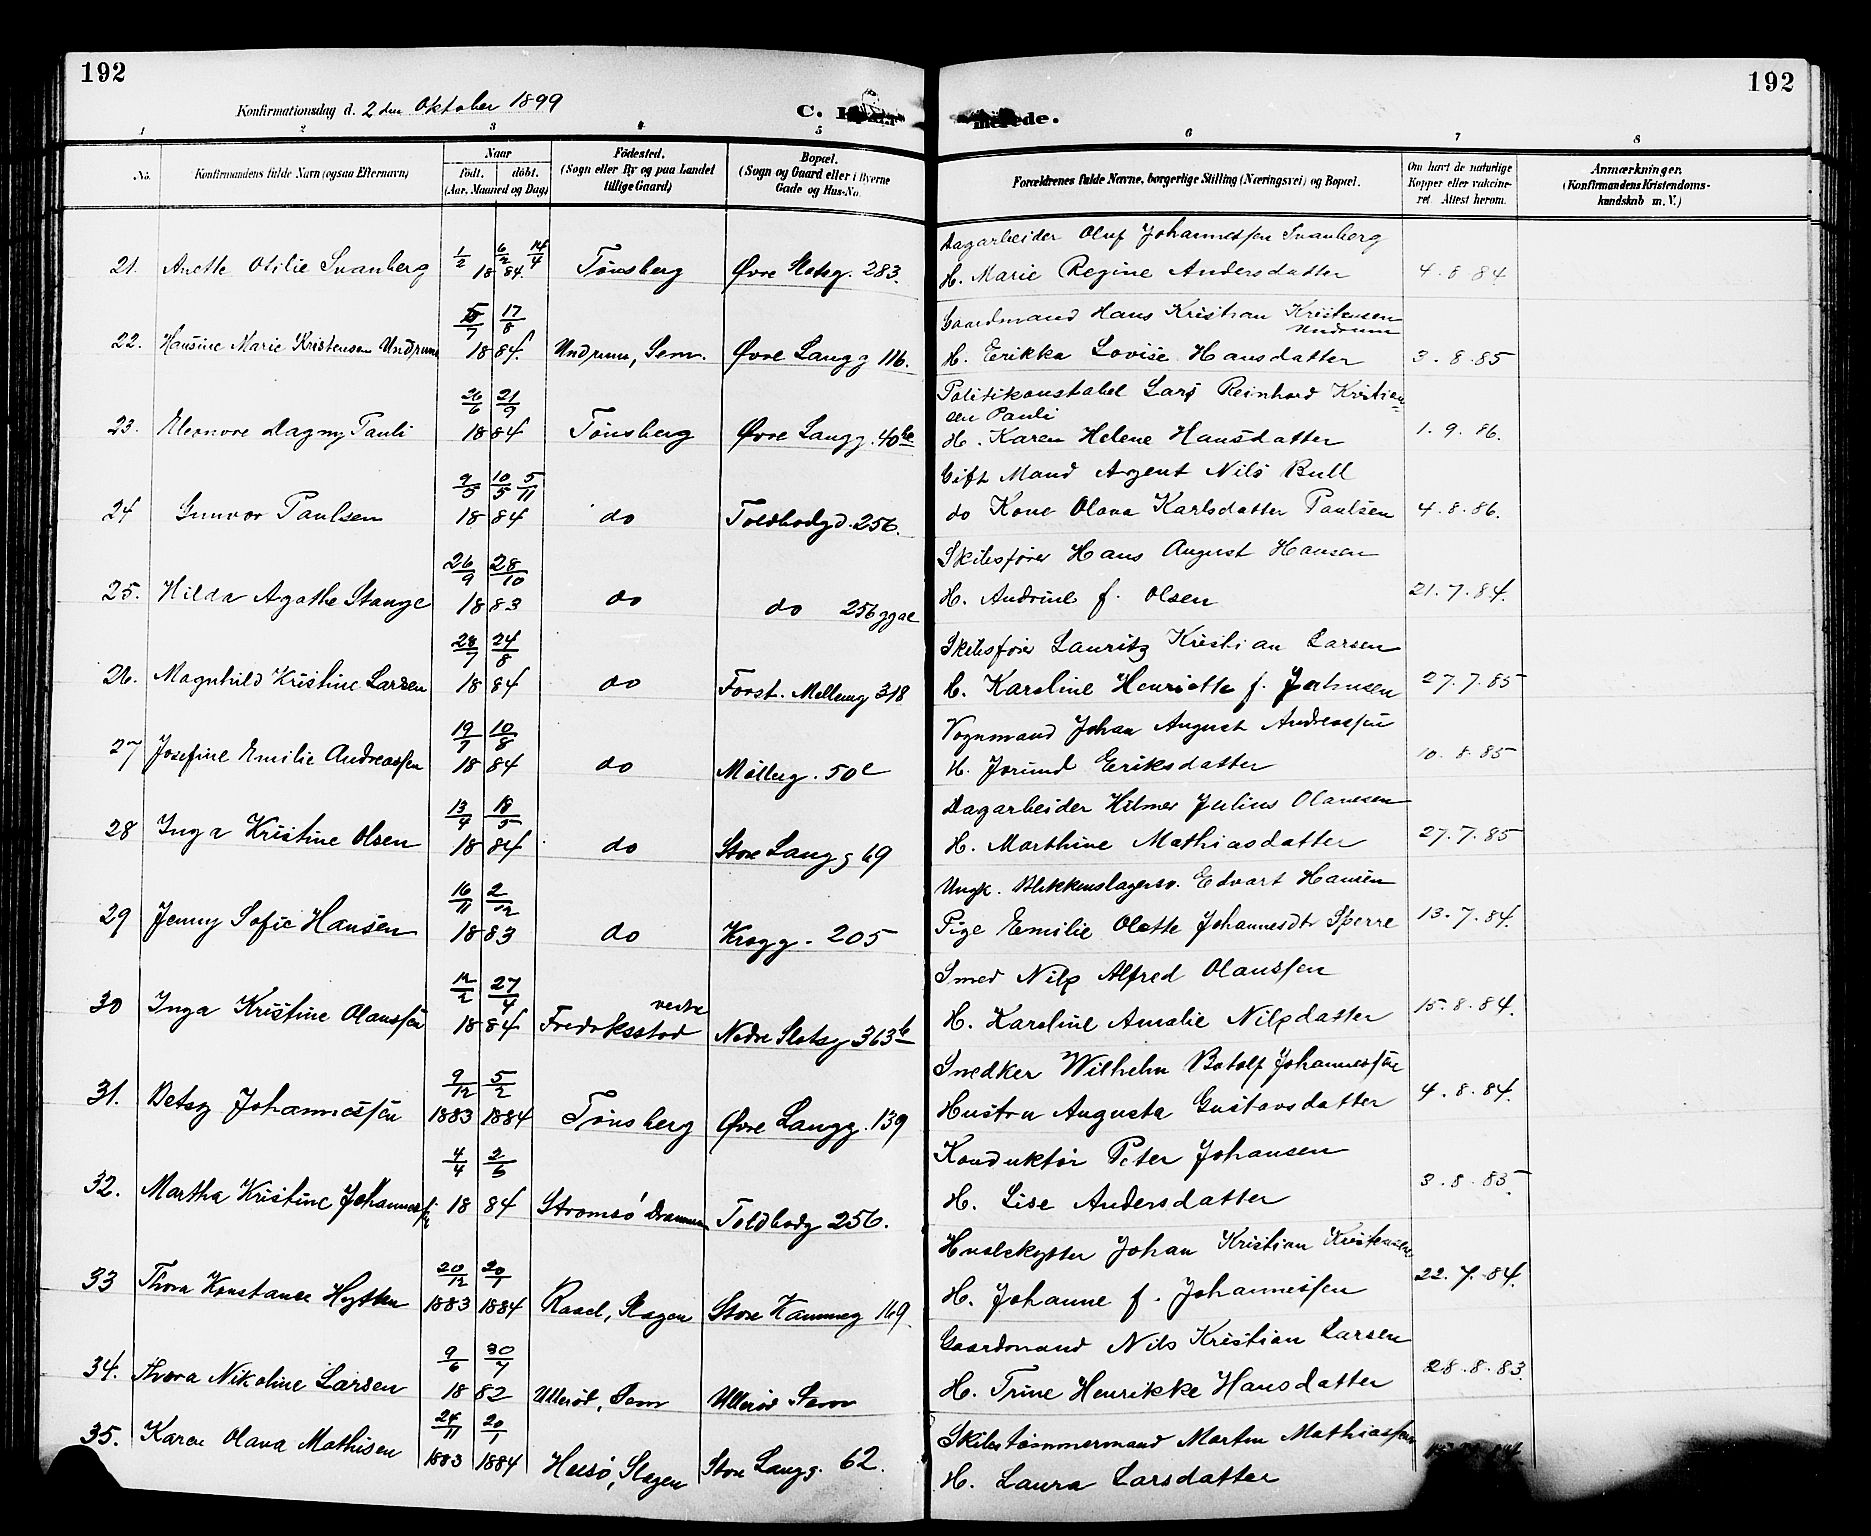 192
192
Konfirmationsdag d. 2 den Oktober 1899
C. merede.
1 2 3 4 5 6 7 8
No.
Konfirmandens fulde Navn (ogsaa Efternavn)
Naar
født. døbt.
(Aar, Maaned og Dag)
Fødested.
(Sogn eller By og paa Landet
tillige Gaard)
Bopæl.
(Sogn og Gaard eller i Byerne
Gade og Hus-No.
Forældrenes fulde Navne, borgerlige Stilling (Næringsvei) og Bopæl.
Om havt de naturlige
Kopper eller vakcine-
ret Attest herom.
Anmærkninger.
(Konfirmandens Kristendoms-
kundskab m. V.)
1/2 6/2 14/4 Dagarbeider Oluf Johannessen Svanberg
21. Anette Otilie Svanberg 18 84. Tønsberg Øvre Slotsg. 283. H. Marie Regine Andersdatter 4. 8 84
5/7 17/8 Gaardmand Hans Kristian Kristensen
Undrum
22. Hansine Marie Kristensen Undrum 18 84. Undrum, Sem. Øvre Langg 116. H. Erikka Lovise Hansdatter 3. 8. 85
26/6 21/9 Politikonstabel Lars Reinhard Kristian-
sen Pauli
23. Eleonore Dagny Pauli 18 84 Tønsberg Øvre Langg. 40 H. Karen Helene Hansdatter 1. 9. 86.
9/5 10/5 5/11 Gift Mand Agent Nils Bull
24 Gunvor Paulsen 18 84 do Toldbodgd. 256. do Kone Olava Karlsdatter Paulsen 4. 8. 86.
26/9 28/10 Skibsfører Hans August Hansen
25. Hilda Agathe Stange 18 83 do do 256 H. Andrine f. Olsen 21. 7. 84.
28/7 24/8 Skibsfører Lauritz Kristian Larsen
26. Magnhild Kristine Larsen 18 84 do Forst. Mellemg 318 H. Karoline Henriette f. Jahnsen 27. 7. 85
19/7 10/8 Vognmand Johan August Andreassen
27 Josefine Emilie Andreassen 18 84 do Møllerg. 50 H. Jorund Eriksdatter 10. 8. 85
13/4 18/5 Dagarbeider Hilmer Julius Olavesen
28 Inga Kristine Olsen 18 84 do Store Langg 69 H. Marthine Mathiasdatter 27. 7. 85
16/11 2/12 Ungk. Blikkenslagersv. Edvart Hansen
29 Jenny Sofie Hansen 18 83 do Krogg. 205 Pige Emilie Olette Johannesdtr Sperre 13. 7. 84.
12/2 27/4 Smed Nils Alfred Olaussen
vestre
30 Inga Kristine Olaussen 18 84 Fredriksstad Nedre Slotsg 363 b H. Karoline Amalie Nilsdatter 15. 8. 84.
9/12 5/2 Snedker Wilhelm Botolf Johannessen
31. Betsy Johannessen 1883 1884 Tønsberg Øvre Langg. 139 Hustru Augusta Gustavsdatter 4. 8. 84.
4/4 2/6 Konduktør Peter Johansen
32. Martha Kristine Johannessen 18 84 Stromsø Drammen Toldbodg 256. H. Lise Andersdatter 3. 8. 85.
20/12 20/1 Hvalskytter Johan Kristian Kristensen
33 Thora Konstance Hytten 1883 1884 Raael, Slagen Store Kammeg 169 H. Johanne f. Johannessen 22. 7. 84.
9/6 30/7 Gaardmand Nils Kristian Larsen
34. Thora Nikoline Larsen 18 82 Ullerød, Sem Ullerød Sem H. Trine Henrikke Hansdatter 28. 8. 83.
24/11 20/1 Skibstømmermand Martin Mathiassen
35. Karen Olava Mathisen 1883 1884 Husø, Slagen Store Langg. 62. H. Laura Larsdatter